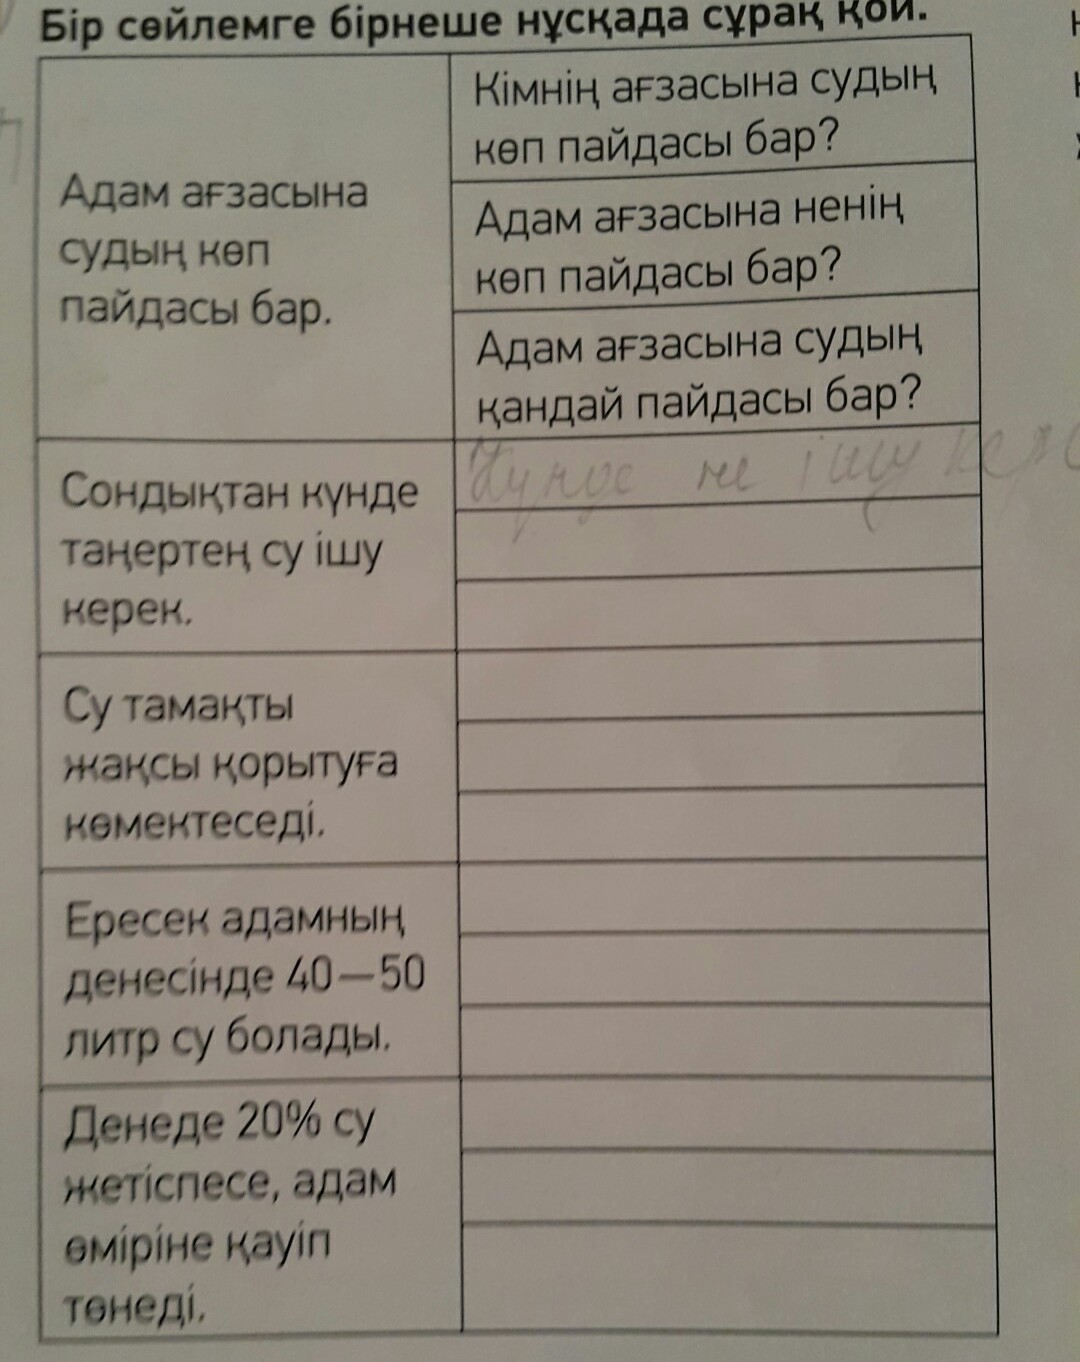 Бір сөйлемге бірнеше нұсқада сұрақ қой.
Адам ағзасына
судың көп
пайдасы бар.
Кімнің ағзасына судың
көп пайдасы бар?
Адам ағзасына ненің
көп пайдасы бар?
Адам ағзасына судың
қандай пайдасы бар?
Сондықтан күнде
таңертең су ішу
керек.
Күнде не ішу
Су тамақты
жақсы қорытуға
көмектеседі.
Ересек адамның
денесінде 40—50
литр су болады.
Денеде 20% су
жетіспесе, адам
өміріне қауіп
төнеді.